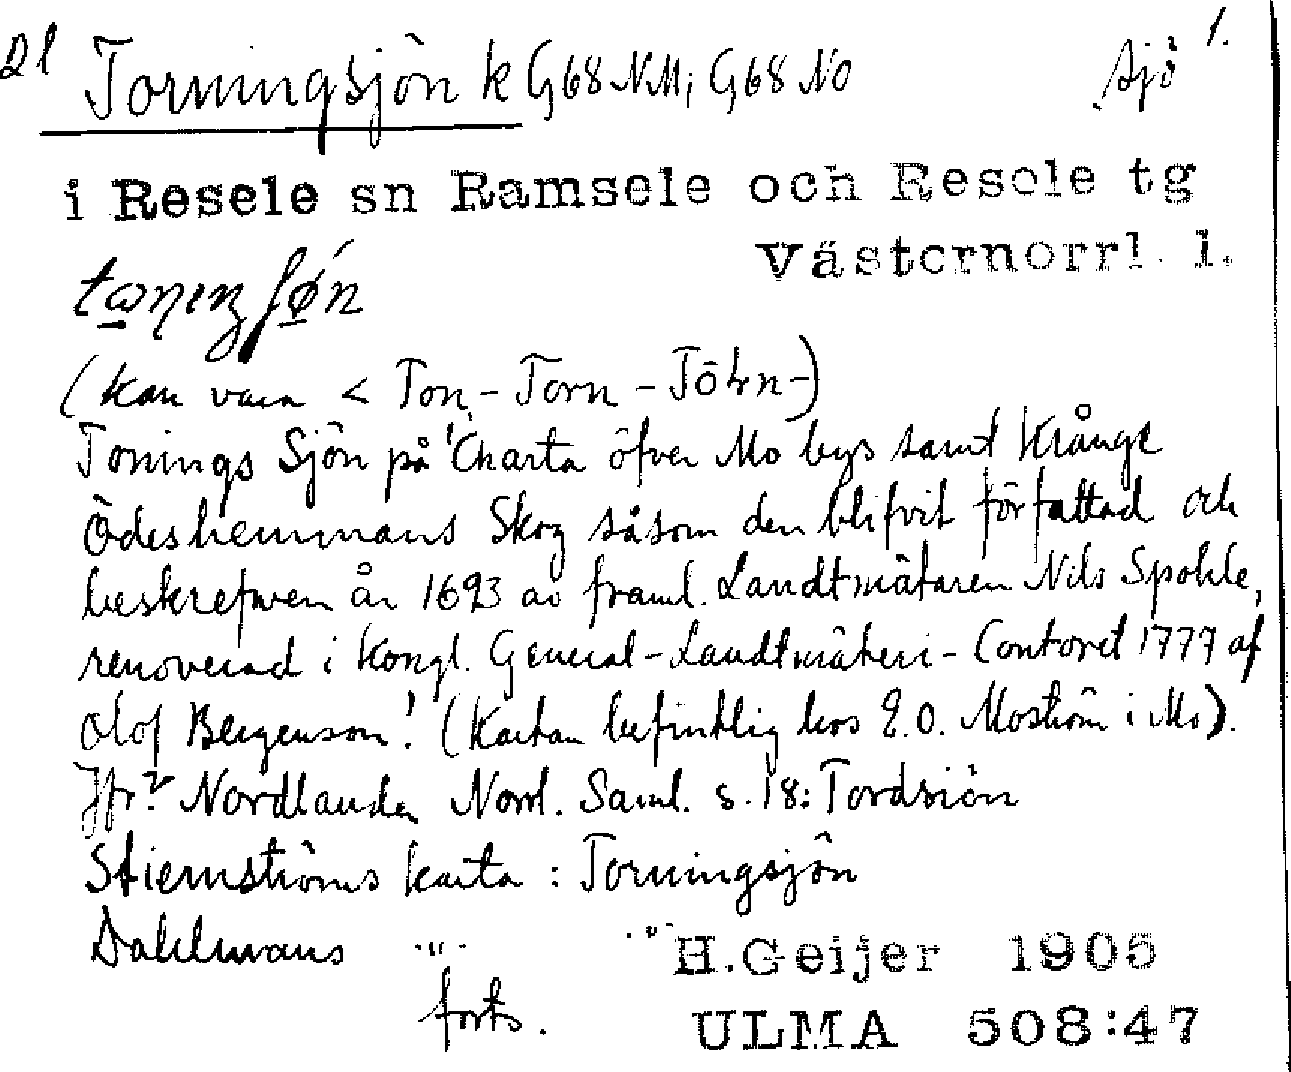 Dl Torningsjön k G68 NM; G68 NO sjö 1.
i Resele sn Ramsele och Resele tg
Västernorrl. l.
(kan vara < Ton- Torn - Törn-)
Tonings Sjön på "Charta öfver Mo bys samt Krånge
Ödeshemmans Skog såsom den blifvit författad och
beskrefwen år 1693 av framl. Landtmätaren Nils Spohle,
renoverad i Kongl. General-Landtmäteri-Contoret 1777 af
Olof Bergenson! (Kartan befintlig hos E.O. Moström i Mo).
Jfr? Nordlander Norrl. Saml. s. 18: Tordsiön
Stiernströms karta : Torningsjön
Dahlmans -"- -"-
H.Geijer 1905
forts.
ULMA 508:47